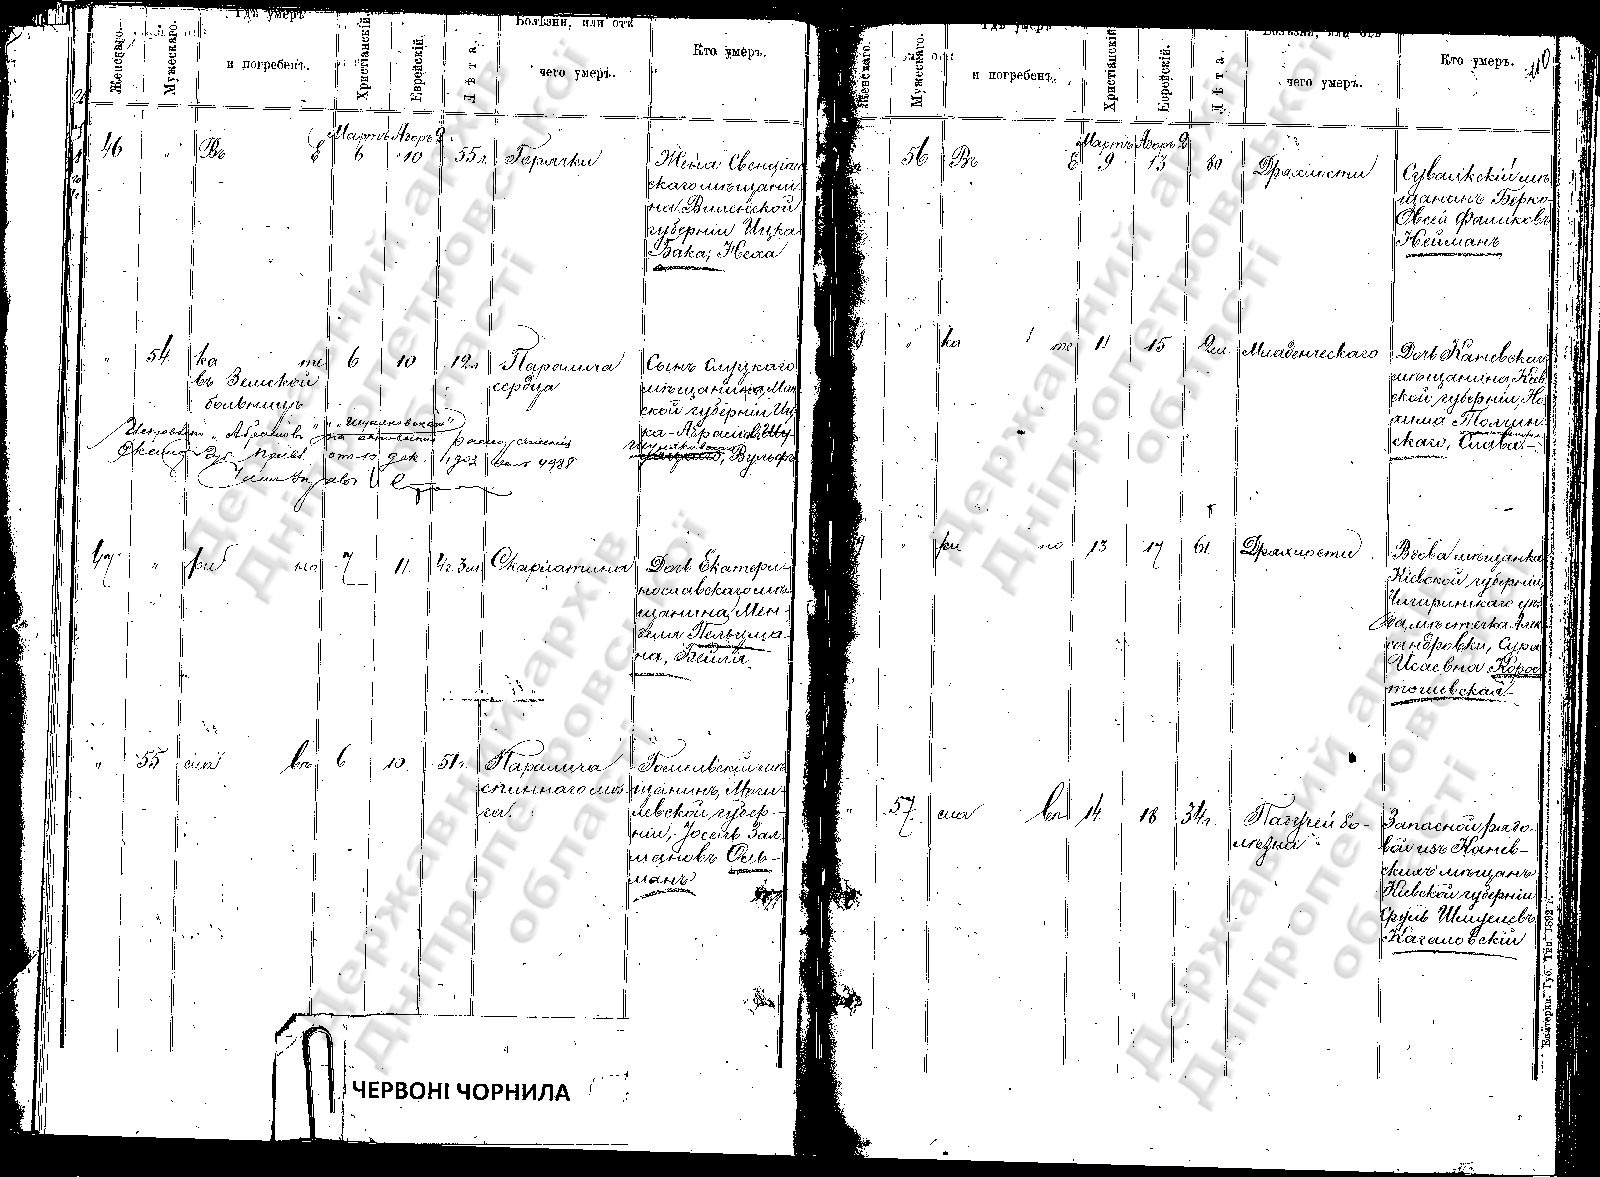 Женскаго.
Мужескаго.
Гдѣ умеръ
и погребенъ.
Христіанскій.
Еврейскій.
Лѣта.
Болѣзни, или отъ
чего умеръ.
Кто умеръ.
46 " Въ Е
Мартъ Адоръ 2.
6 10 55 л. Горячки
Жена Свенцян
скаго мѣщани
на Виленской
губерніи Ицка
Бака, Неха
" 54 ка те 6 10 12 л Паралича
сердца
въ Земской
больницѣ
Сынъ Слуцкаго
мѣщанина, Мин
ской губерніи Иц
ка-Абрамов
Вульфъ
47 " ри но 7 11 4 г. 3 м Скарлатина
Дочь Екатери
нославскаго мѣ
щанина, Мен-
деля Пельцма-
на, Бейля
" 55 сла въ 6 10 51 г. Паралича
спиннаго моз
га.
Гомельскій мѣ
щанинъ, Моги
левской губер-
ніи, Іосель Зал
мановъ Оль-
манъ
ЧЕРВОНІ ЧОРНИЛА
Женскаго.
Мужескаго.
Гдѣ умеръ
и погребенъ.
Христіанскій.
Еврейскій.
Лѣта.
Болѣзни, или отъ
чего умеръ.
Кто умеръ.
110
56 Въ Е
Мартъ Адоръ 2
9 13 80 Дряхлости
Сувалкскій мѣ
щанинъ Берко-
Овсей Фаликовъ
Нейманъ
" " ка те 11 15 2 м. Младенческаго
Дочь Каневскаго
мѣщанина, Кіев
ской губерніи, Но
хима Толчин
скаго, Слава.-
" ри но 13 17 61 Дряхлости
Вдова мѣщанка
Кіевской губерніи
Чигиринскаго уѣз
да мѣстечка Алек
сандровки, Сура
Исаевна Корос
тошевская-
" 57 сла въ 14 18 34 г. Падучей бо-
лѣзни
Запасной рядо-
вой изъ Канев-
скихъ мѣщанъ
Кіевской губерніи
Сруль Шмулевъ
Качаловскій
Екатерин. Губ. Тип. 1892 г.
Державний архів
Дніпропетровської
області